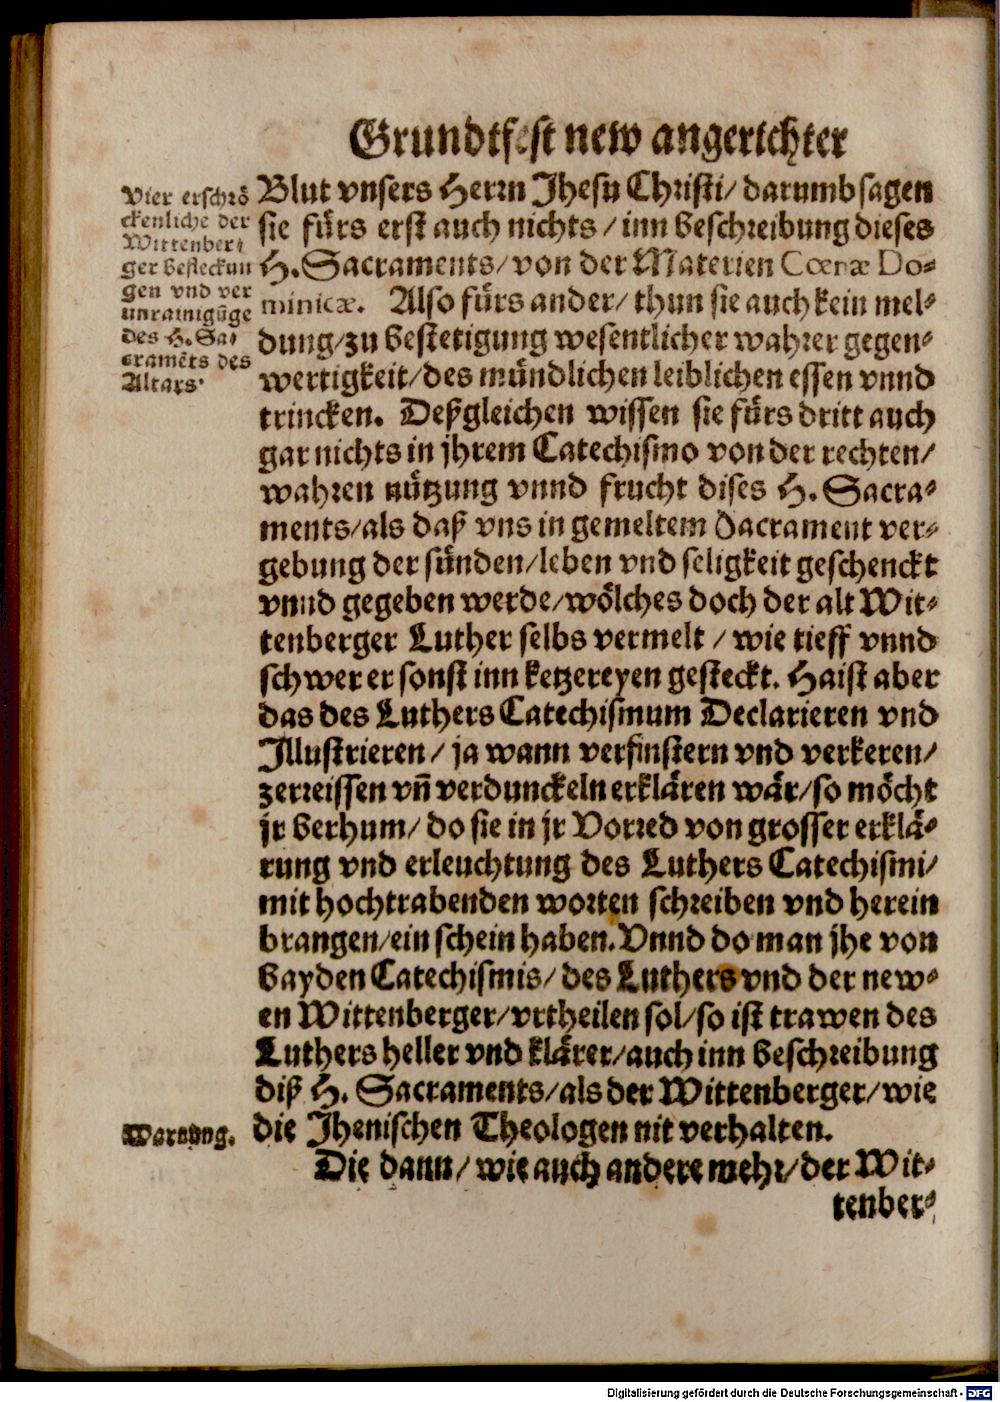 Grundtfest new angerichter
Vier erschrö
ckenliche der
Wittenber⸗
ger besteckun
gen vnd ver
unrainigūge
des H. Sa⸗
cramēts des
Altars.
Blut vnsers Herrn Jhesu Christi/ darumb sagen
sie fürs erst auch nichts / inn beschreibung dieses
H. Sacraments/ von der Materien Cœnæ Do⸗
minicæ. Also fürs ander/ thun sie auch kein mel⸗
dung/ zu bestetigung wesentlicher wahrer gegen⸗
wertigkeit/ des mündlichen leiblichen essen vnnd
trincken. Deßgleichen wissen sie fürs dritt auch
gar nichts in jhrem Catechismo von der rechten/
wahren nützung vnnd frucht dises H. Sacra⸗
ments/ als daß vns in gemeltem Sacrament ver⸗
gebung der sünden/ leben vnd seligkeit geschenckt
vnnd gegeben werde/ wölches doch der alt Wit⸗
tenberger Luther selbs vermelt / wie tieff vnnd
schwer er sonst inn ketzereyen gesteckt. Haist aber
das des Luthers Catechismum Declarieren vnd
Illustrieren/ ja wann verfinstern vnd verkeren/
zerreissen vñ verdunckeln erklären wär/ so möcht
jr berhum/ do sie in jr Vorred von grosser erklä⸗
rung vnd erleuchtung des Luthers Catechismi/
mit hochtrabenden worten schreiben vnd herein
brangen/ ein schein haben. Vnnd do man jhe von
bayden Catechismis/ des Luthers vnd der new⸗
en Wittenberger/ vrtheilen sol/ so ist trawen des
Luthers heller vnd klärer/ auch inn beschreibung
diß H. Sacraments/ als der Wittenberger/ wie
die Jhenischen Theologen nit verhalten.
Warnung.
Die dann/ wie auch andere mehr/ der Wit⸗
tenber⸗
Digitalisierung gefördert durch die Deutsche Forschungsgemeinschaft - DFG